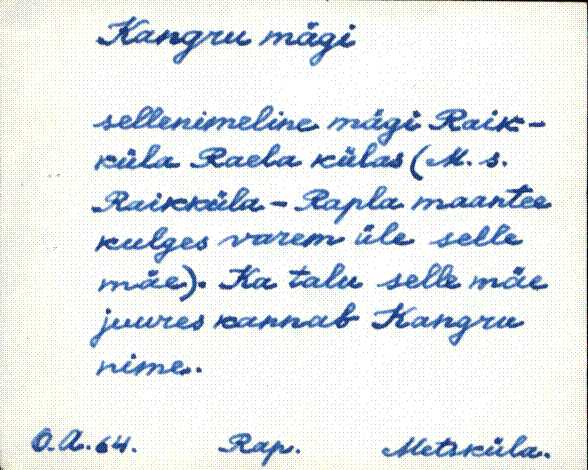 Kangru mägi
sellenimeline mägi Raik-
küla Raela külas (M. s.
Raikküla - Rapla maantee
kulges varem üle selle
mäe). Ka talu selle mäe
juures kannab Kangru
nime.
O.A. 64. Rap. Metsküla.